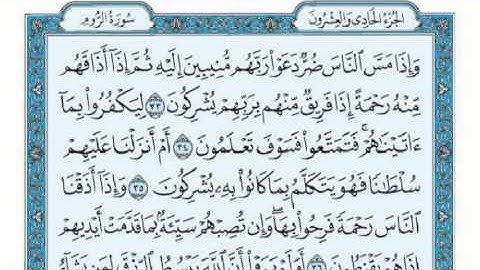 الجزء الحادي والعشرون
سورة الروم
وَإِذَا مَسَّ ٱلنَّاسَ ضُرٌّ دَعَوْا۟ رَبَّهُم مُّنِيبِينَ إِلَيْهِ ثُمَّ إِذَآ أَذَاقَهُم
مِّنْهُ رَحْمَةً إِذَا فَرِيقٌ مِّنْهُم بِرَبِّهِمْ يُشْرِكُونَ ٣٣ لِيَكْفُرُوا۟ بِمَآ
ءَاتَيْنَٰهُمْ ۚ فَتَمَتَّعُوا۟ فَسَوْفَ تَعْلَمُونَ ٣٤ أَمْ أَنزَلْنَا عَلَيْهِمْ
سُلْطَٰنًا فَهُوَ يَتَكَلَّمُ بِمَا كَانُوا۟ بِهِۦ يُشْرِكُونَ ٣٥ وَإِذَآ أَذَقْنَا
ٱلنَّاسَ رَحْمَةً فَرِحُوا۟ بِهَا ۖ وَإِن تُصِبْهُمْ سَيِّئَةٌۢ بِمَا قَدَّمَتْ أَيْدِيهِمْ
إِذَا هُمْ يَقْنَطُونَ ٣٦ أَوَلَمْ يَرَوْا۟ أَنَّ ٱللَّهَ يَبْسُطُ ٱلرِّزْقَ لِمَن يَشَآءُ